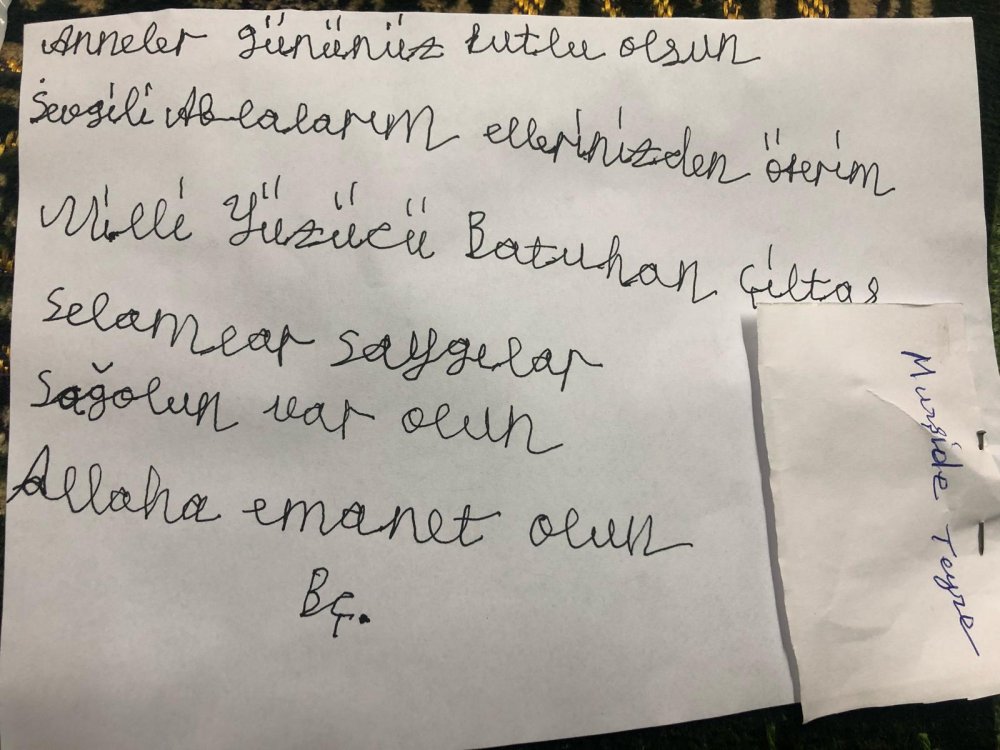 Anneler gününüz kutlu olsun
Sevgili Ablalarım ellerinizden öperim
Milli Yüzücü Batuhan Çiltaş
Selamlar saygılar
Sağolun var olun
Allaha emanet olun
BÇ.
Murşide Teyze